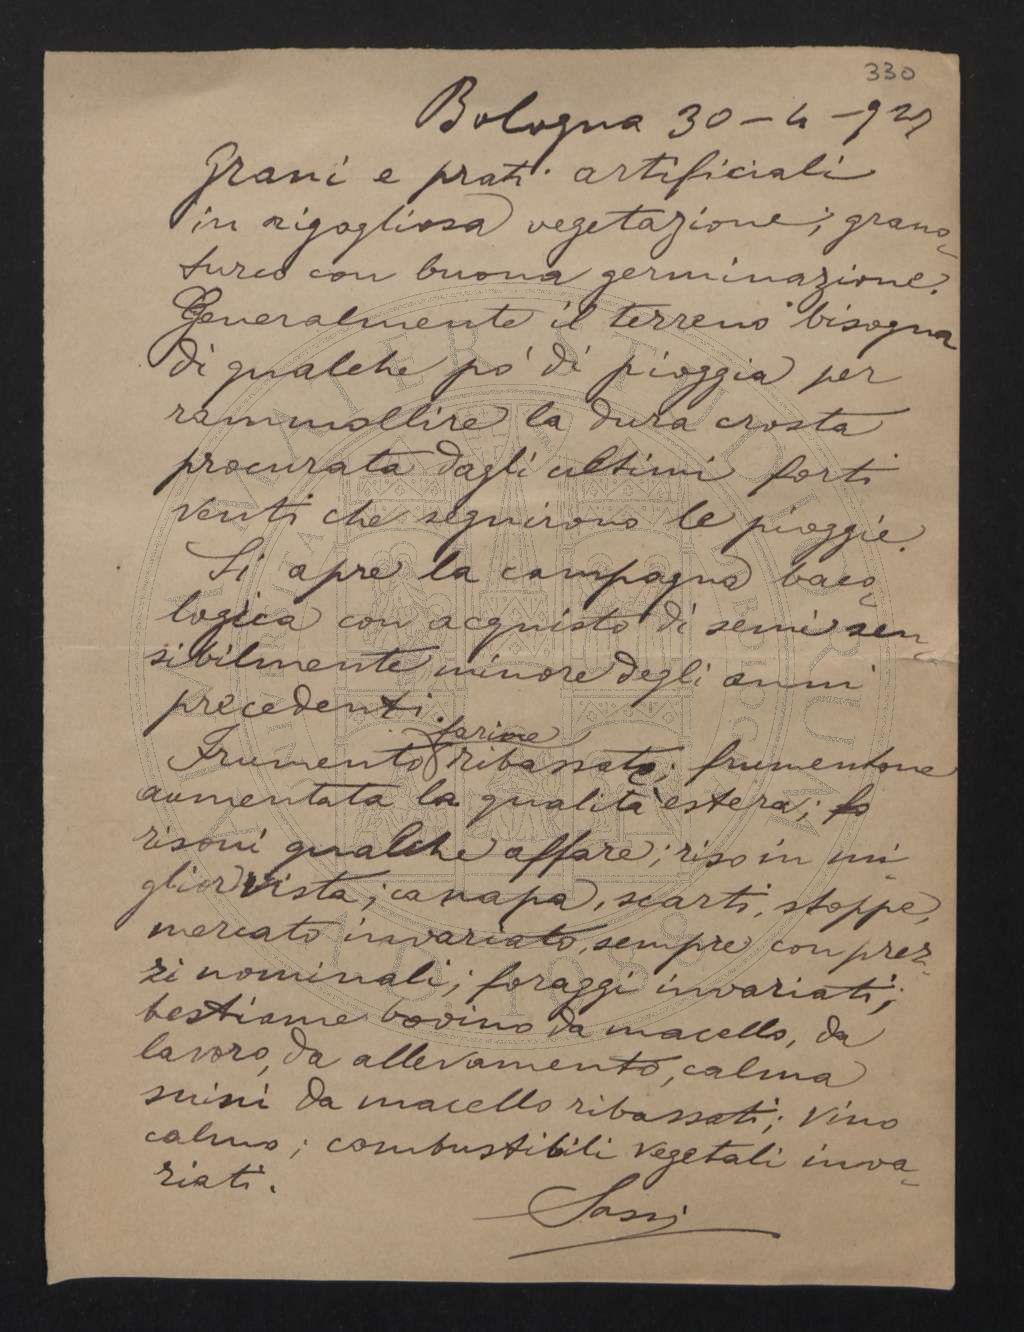 330
Bologna 30-4-927
Grani e prati artificiali
in rigogliosa vegetazione; grano-
turco con buona germinazione.
Generalmente il terreno bisogna
di qualche pó di pioggia per
rammollire la dura crosta
procurata dagli ultimi forti
venti che seguirono le pioggie.
Si apre la campagna baco-
logica con acquisto di semi sen-
sibilmente minore degli anni
precedenti.
farine
Frumento ribassato; frumentone
aumentata la qualità estera;
risoni qualche affare; riso in mi-
glior vista; canapa, scarti, stoppe,
mercato invariato, sempre con prez-
zi nominali; foraggi invariati;
bestiame bovino da macello, da
lavoro, da allevamento, calma
suini da macello ribassati; vino
calmo; combustibili vegetali inva-
riati.
Sassi
ALMA MATER STUDIORUM